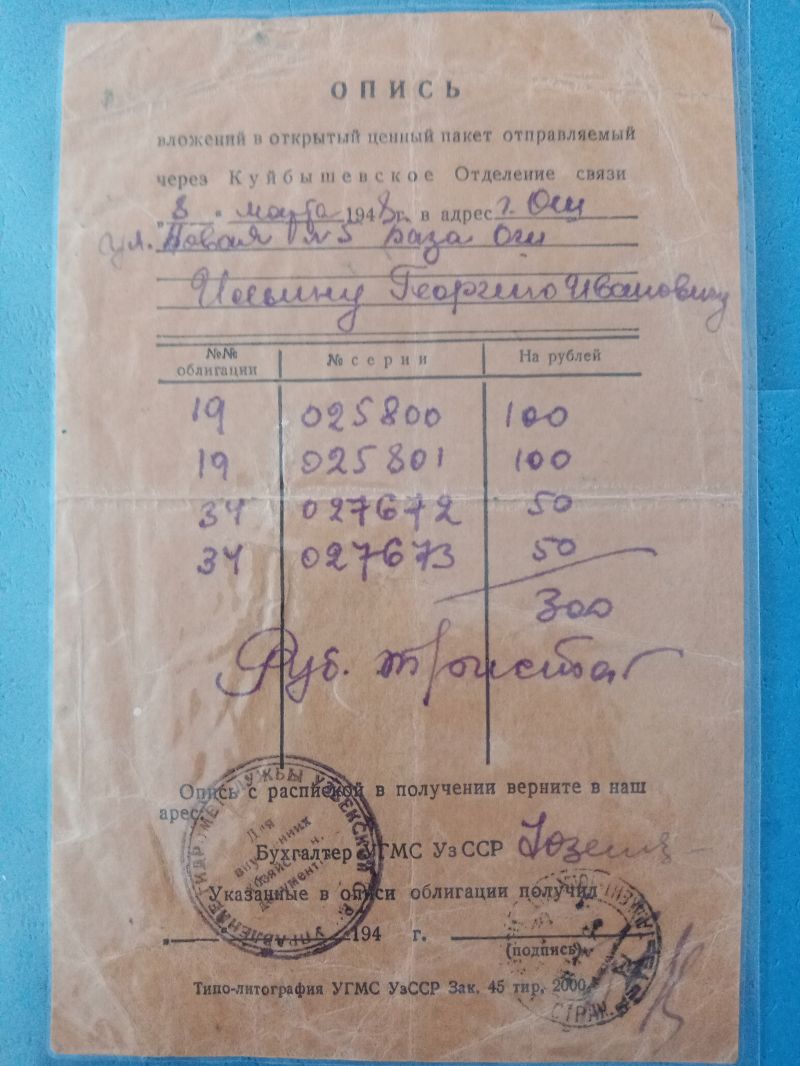 ОПИСЬ
вложений в открытый ценный пакет отправляемый
через Куйбышевское Отделение связи
"8" марта 1948г. в адрес г. Ош
ул. Новая №5 база Ош
Ильину Георгию Ивановичу
№№ облигации № серии На рублей
19 025800 100
19 025801 100
34 027672 50
34 027673 50
300
Руб. триста
Опись с распиской в получении верните в наш
арес.
Бухгалтер УГМС УзССР
Указанные в описи облигации получил
194 г.
(подпись)
Типо-литография УГМС УзССР Зак. 45 тир. 2000
УПРАВЛЕНИЕ ГИДРОМЕТСЛУЖБЫ УЗБЕКСКОЙ
Для
внутренних
СТРАХ